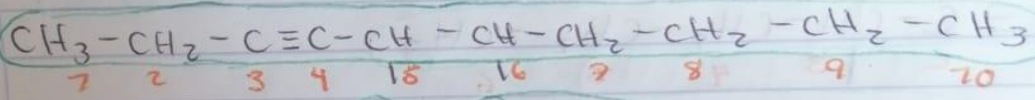 CH₃-CH₂-C≡C-CH-CH-CH₂-CH₂-CH₂-CH₃
1 2 3 4 15 16 7 8 9 10